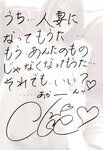 うち…人妻に
なってもうた…
もう あんたのもの
じゃなくなってもうた…
それでも…いい?♡